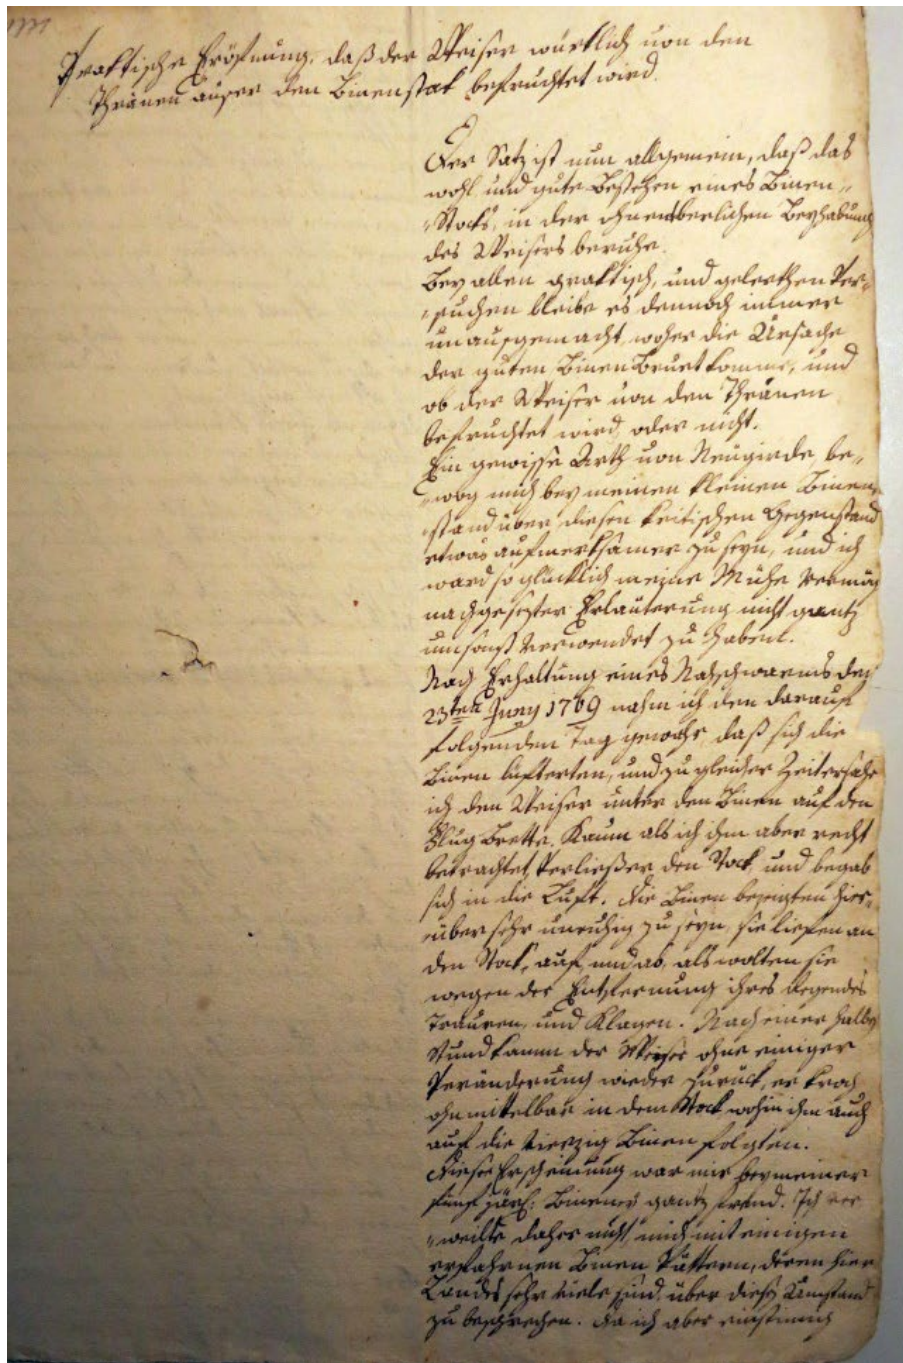 Praktische Eröfnung, daß der Weiser würklich von den
Thränen auser den Binenstok befruchtet wird.
Der Satz ist nun allgemein, daß das
wohl und gute bestehen eines Binen„
„Stocks, in der ohnentberlichen Beyhabung
des Weisers beruhe.
Bey allen praktisch, und gelerthen Ver„
„suchen bleibe es dennoch immer
unausgemacht, woher die Ursache
der guten Binen Bruet komme, und
ob der Weiser von den Thränen
befruchtet wird, oder nicht.
Ein gewisse Arth von Neügirde be„
„wog mich bey meinen kleinen Binen„
stand über diesen kritischen Gegenstand
etwas aufmerksamer zu seyn, und ich
ward so glücklich meine Mühe vermög
nachgesezter Erläuterung nicht gantz
umsonst verwendet zu haben.
Nach Erhaltung eines Nachschwarms den
23ten Juny 1769 nahm ich den darauf
folgenden Tag gewahr, daß sich die
Binen lüfterten, und zu gleicher Zeit ersahe
ich den Weiser unter den Binen auf den
Flug Brette. Kaum als ich ihm aber recht
betrachtet, Verließ er den Stock, und begab
sich in die Luft. Die Binen bezeigten hier„
„über sehr unruhig zu seyn, sie liefen an
den Stock, auf und ab, als wolten sie
wegen der Entfernung ihres Regendes
Trauren, und Klagen. Nach einer halbe
Stund kamm der Weiser ohne einiger
Veränderung wieder zurück, er kroch
ohnmittelbar in dem Stock wohin ihm auch
auf die vierzig Binen folgten.
Diese Erscheinung war mir bey meiner
fünf jähr: gantz fremd. Ich ver
„weilte daher nicht, mich mit einigen
erfahrnen Binen Vättern, deren hier
Landes sehr viele sind, über diesen Umstand
zu besprechen. Da ich aber einstimmig